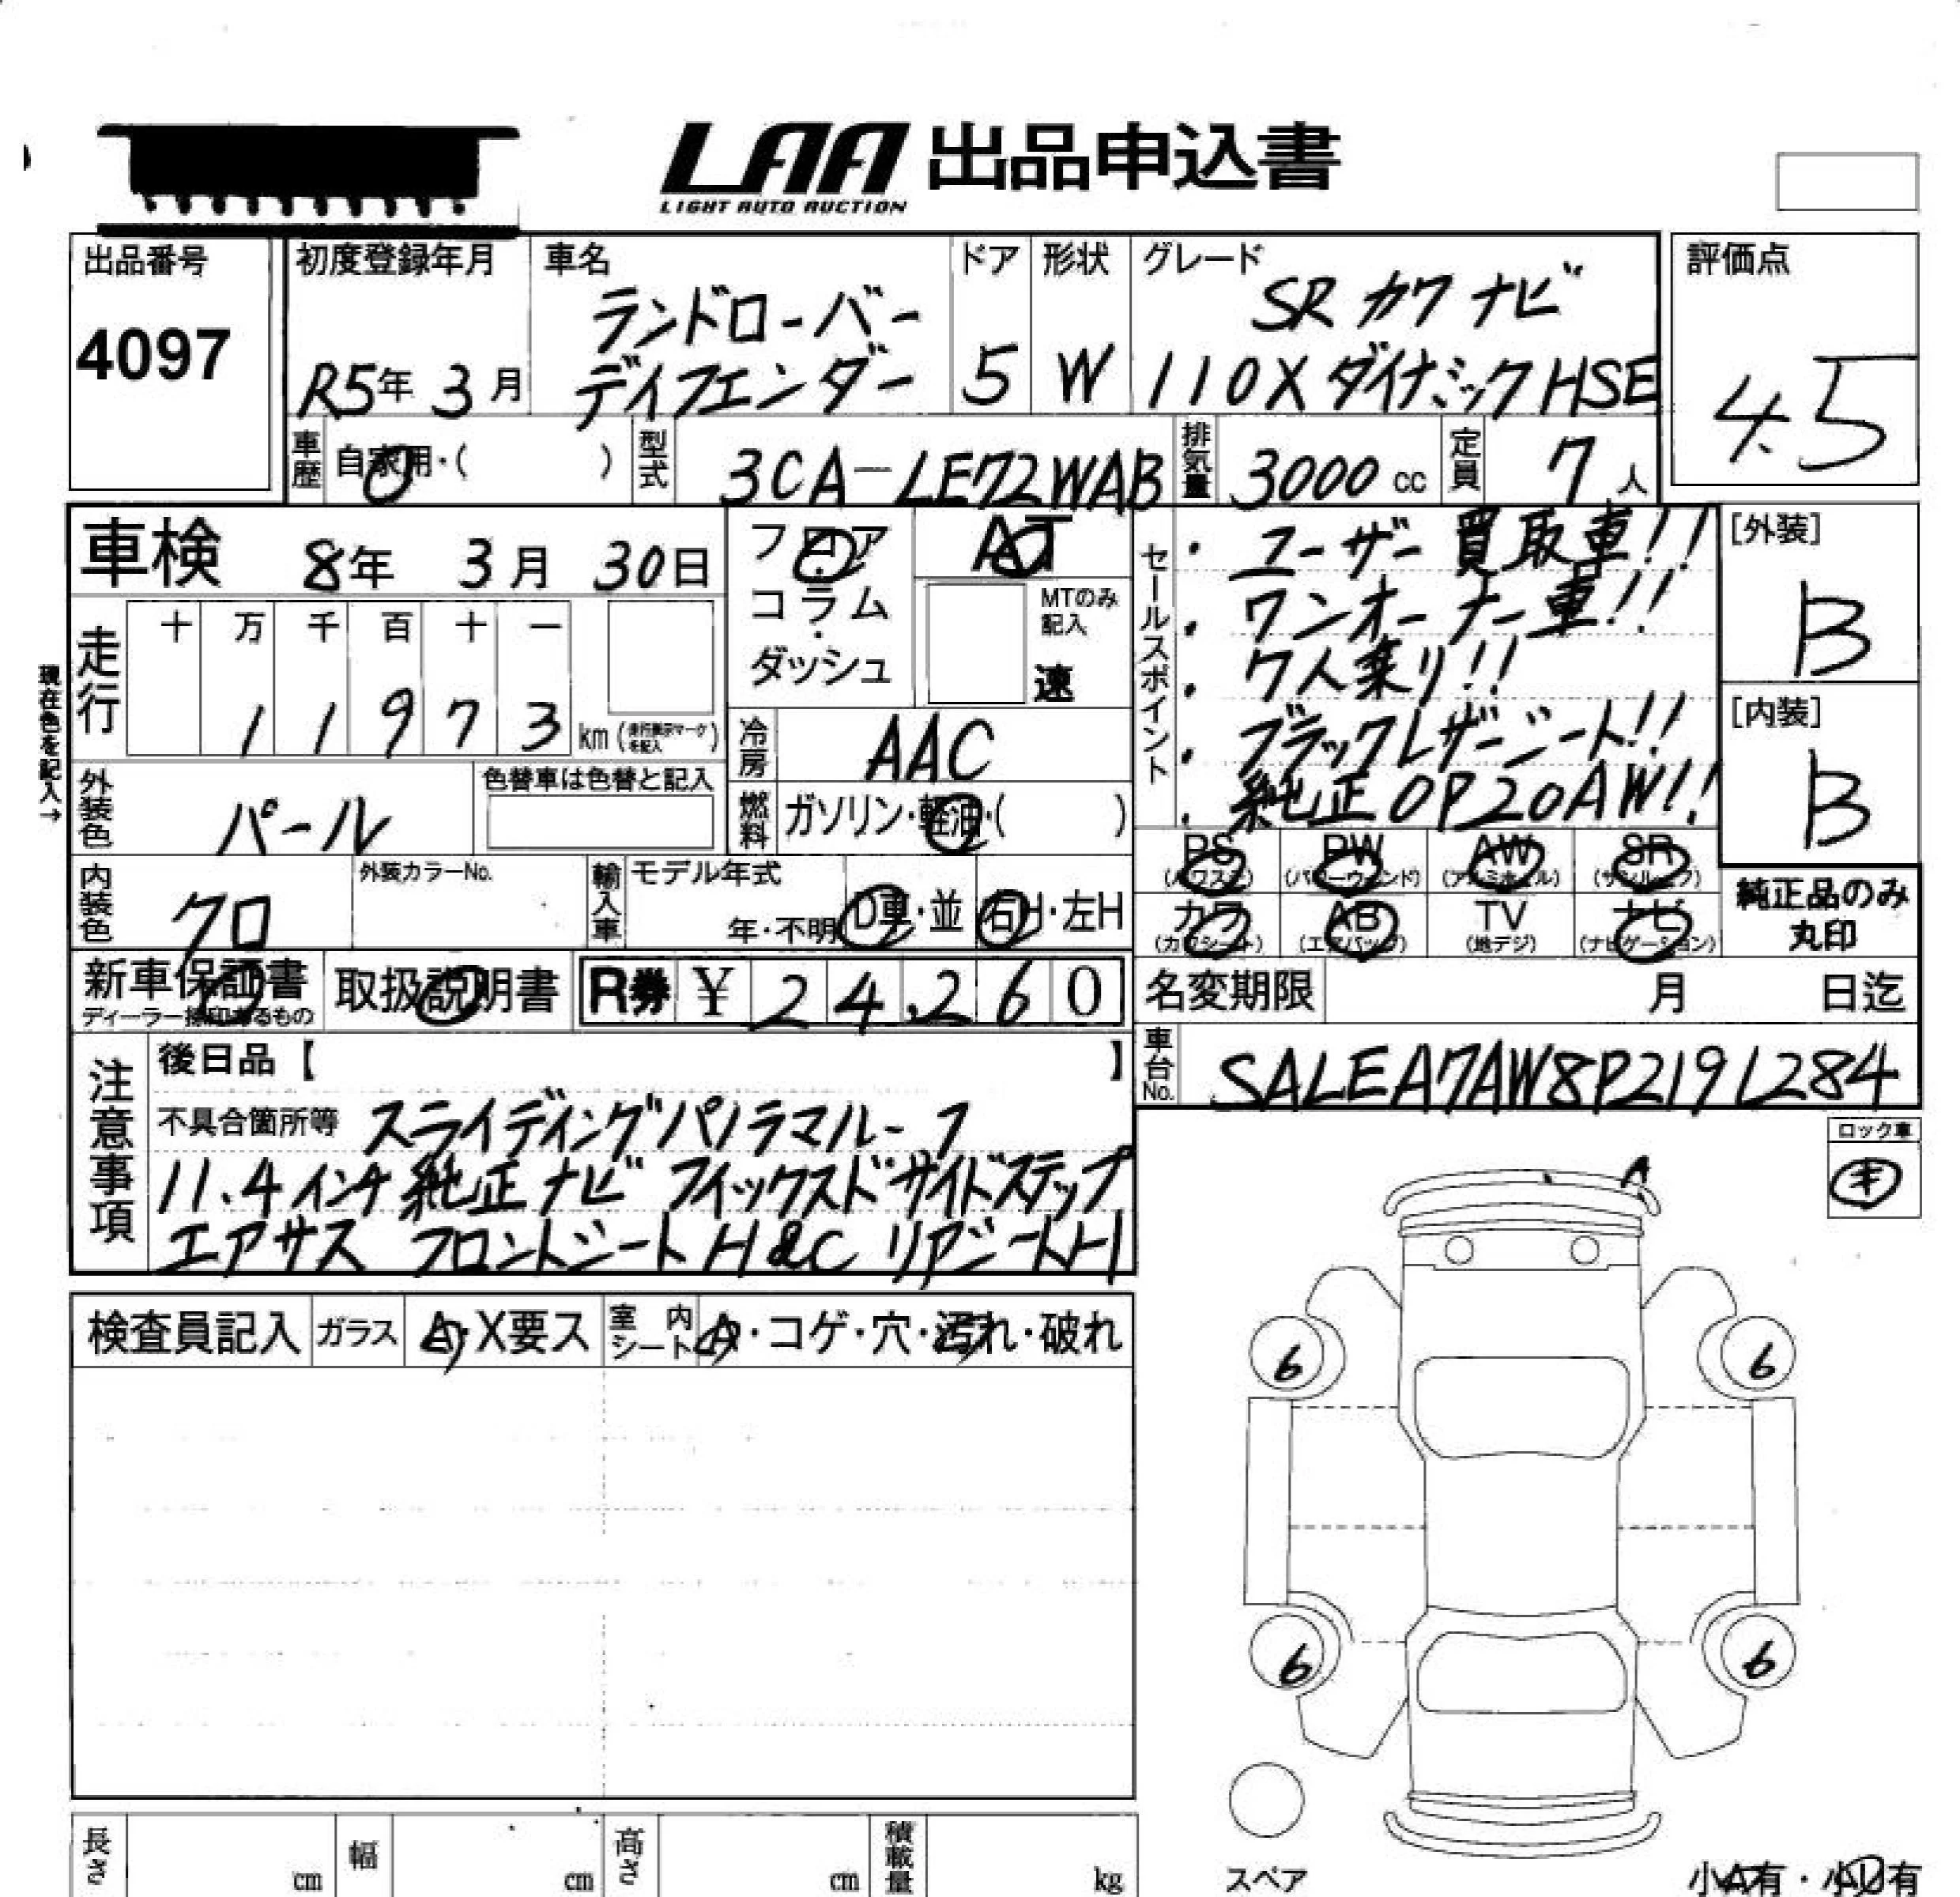 LAA 出品申込書
LIGHT AUTO AUCTION
出品番号
4097
初度登録年月
R5年 3月
車名
ランドローバー
ディフェンダー
ドア
5
形状
W
グレード
SR カワ ナビ
110X ダイナミック HSE
評価点
4.5
車歴
自家用・( )
型式
3CA-LE72WAB
排気量
3000 cc
定員
7 人
車検 8年 3月 30日
フロア
コラム
ダッシュ
AT
MTのみ
記入
速
セールスポイント
・ユーザー買取車!!
・ワンオーナー車!!
・7人乗り!!
・ブラックレザーシート!!
・純正OP20AW!!
[外装]
B
[内装]
B
現在色を記入→
走行
十 万 千 百 十 一
1 1 9 7 3 km
冷房
AAC
外装色
パール
色替車は色替と記入
燃料
ガソリン・軽油・( )
内装色
クロ
外装カラーNo.
輸入車
モデル年式
年・不明
D車・並
右H・左H
PS
(パワステ)
PW
(パワーウィンド)
AW
(アルミホイル)
SR
(サンルーフ)
カワ
(カワシート)
AB
(エアバッグ)
TV
(地デジ)
ナビ
(ナビゲーション)
純正品のみ
丸印
新車保証書
ディーラー捺印あるもの
取扱説明書
R券 ¥ 24,260
名変期限 月 日迄
車台No.
SALEA7AW8P2191284
注意事項
後日品【 】
不具合箇所等 スライディングパノラマルーフ
11.4インチ純正ナビ フィックスドサイドステップ
エアサス フロントシートH&C リアシートH
ロック車
キ
A
検査員記入
ガラス
A・X要ス
室内
シート
A・コゲ・穴・汚れ・破れ
6
6
6
6
スペア
長さ cm
幅 cm
高さ cm
積載量 kg
小A有・小U有